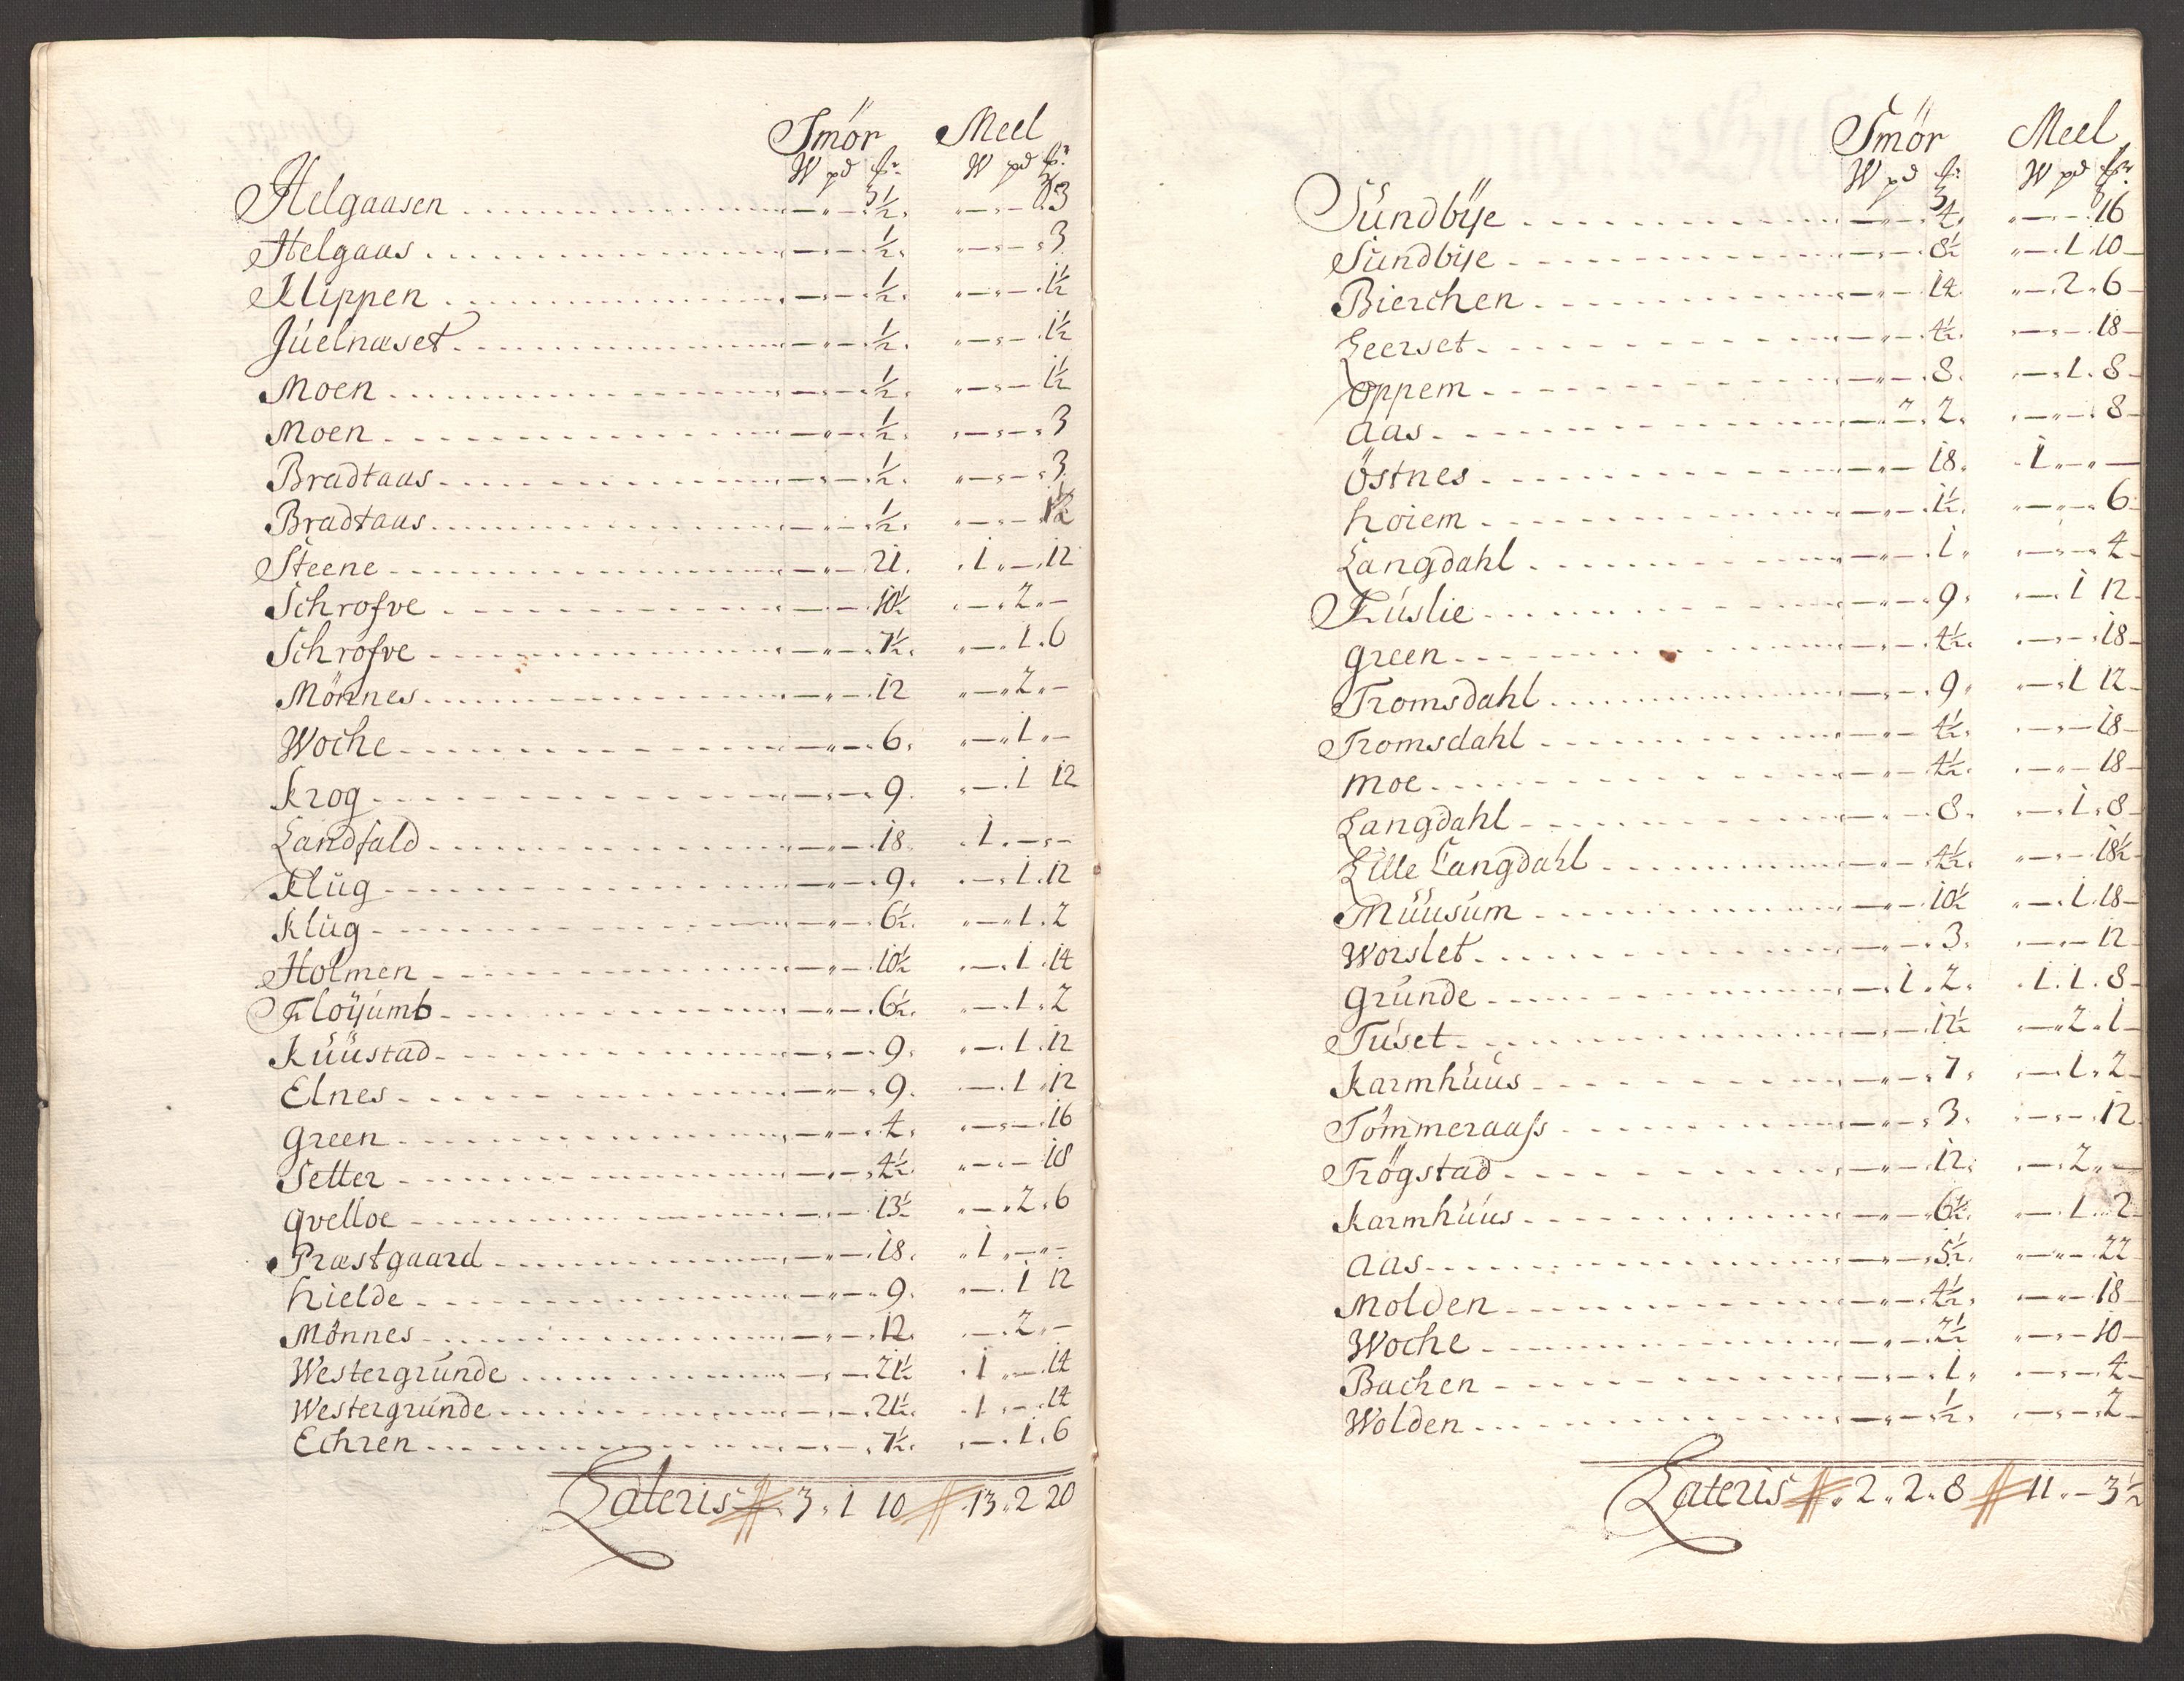 Smör Meel
W pd ℔r W pd ℔r
Helgaasen ½ 3
Helgaas ½ 3
Klippen ½ 1½
Juelnæset ½ 1½
Moen ½ 1½
Moen ½ 3
Bradtaas ½ 3
Bradtaas ½ 1½
Steene 21 1 - 12
Schrofve 10½ 2 -
Schrofve 7½ 1 6
Mönnes 12 2 -
Woche 6 1 -
Krog 9 1 12
Landfald 18 1 - -
Klug 9 1 12
Klug 6½ 1 2
Holmen 10½ 1 14
Floÿumb 6½ 1 2
Kuustad 9 1 12
Elnes 9 1 12
Green 4 16
Setter 4½ 18
Qvelloe 13½ 2 6
Præstgaard 18 1 - -
Hielde 9 1 12
Mönnes 12 2 -
Westergrunde 21½ 1 - 14
Westergrunde 21½ 1 - 14
Echren 7½ 1 6
Lateris 3 1 10 13 2 20
Smör Meel
W pd ℔r W pd ℔r
Sundbÿe 4 16
Sundbÿe 8½ 1 10
Bierchen 14 2 6
Leerset 4½ 18
Oppem 8 1 8
Aas 2 8
Östnes 18 1 - -
Hoiem 1½ 6
Langdahl 1 4
Fúslie 9 1 12
Green 4½ 18
Tromsdahl 9 1 12
Tromsdahl 4½ 18
Moe 4½ 18
Langdahl 8 1 8
Lille Langdahl 4½ 18½
Muusum 10½ 1 18
Worslet 3 12
Grunde 1 2 1 1 8
Tuset 12½ 2 1
Karmhuus 7 1 2
Tömmeraass 3 12
Trögstad 12 2 -
Karmhuus 6½ 1 2
Aas 5½ 22
Molden 4½ 18
Woche 2½ 10
Bachen 1 4
Wolden ½ 2
Lateris 2 2 8 11 - 3½